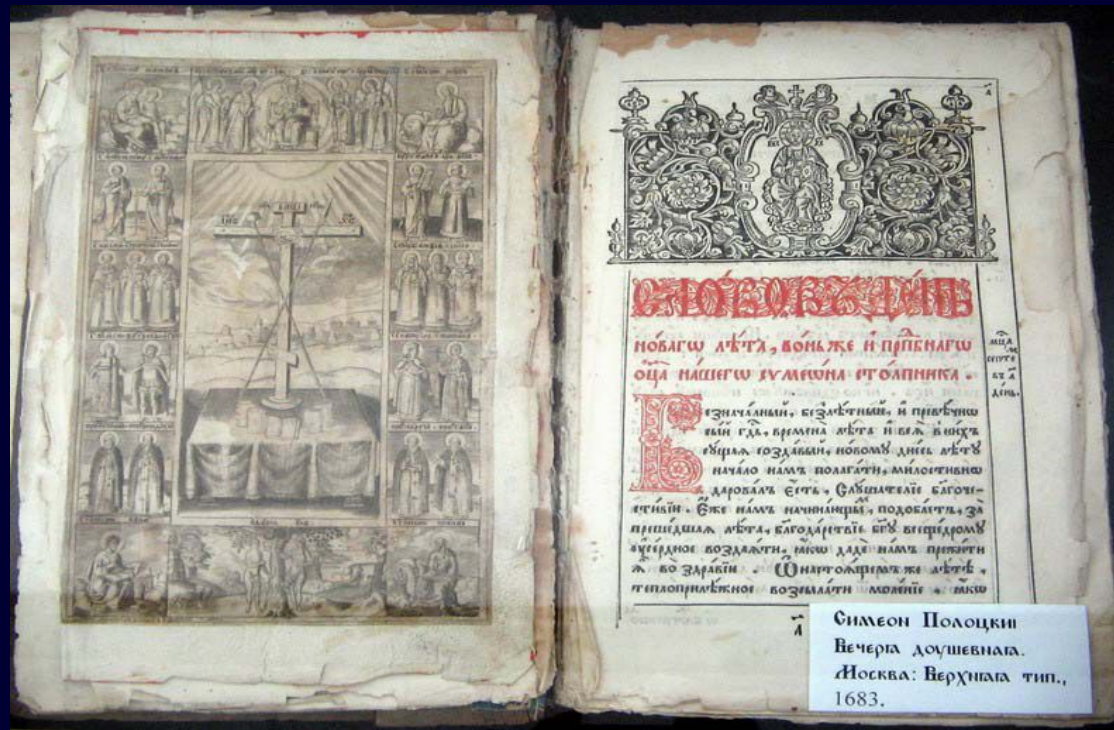 СЛОВО ВЪ ДЕНЬ
новагѡ лѣта, воньже и прⷣпбнагѡ
ѻц҃а нашегѡ сѵмеѡна столпника.
мц҃а
септе
въ а҃
день.
Безначалный, безлѣтный, и превѣчнѡ
сый гдь, времена лѣта и всѧ в нихъ
сущаѧ создавый, новому днесь лѣту
начало намъ полагати, милостивнѡ
даровалъ єсть, Слушателїе бл҃гоче-
стивїи. Єже намъ начинающым, подобаетъ, за
прешедшаѧ лѣта, бл҃годарствїе бг҃у всещедрому
ѹсердное воздаѧти, ꙗкѡ даде намъ прежити
ѧ во здравїи. Ѡ настоѧщемъ же лѣтѣ,
теплоприлѣжное возсылати моленїе, ꙗкѡ
а҃
Симеон Полоцкиі
Вечерꙗ доушевнаꙗ.
Москва: Верхнꙗꙗ тип.,
1683.